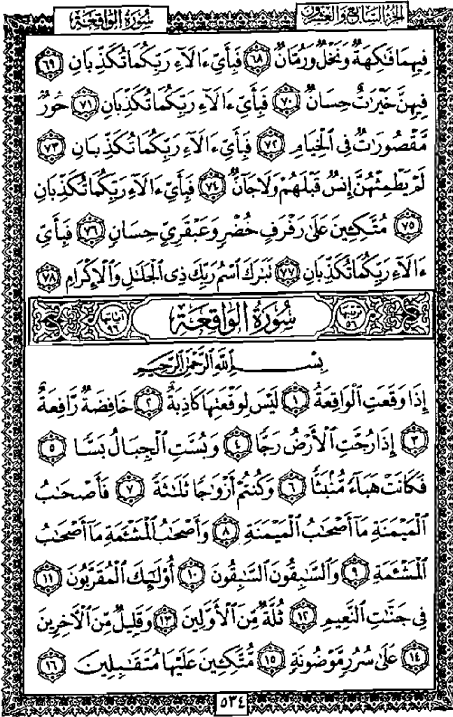 الجزء السابع والعشرون سُورَةُ الوَاقِعَةِ
فِيهِمَا فَٰكِهَةٌ وَنَخْلٌ وَرُمَّانٌ ٦٨ فَبِأَيِّ ءَالَآءِ رَبِّكُمَا تُكَذِّبَانِ ٦٩
فِيهِنَّ خَيْرَٰتٌ حِسَانٌ ٧٠ فَبِأَيِّ ءَالَآءِ رَبِّكُمَا تُكَذِّبَانِ ٧١ حُورٌ
مَّقْصُورَٰتٌ فِي الْخِيَامِ ٧٢ فَبِأَيِّ ءَالَآءِ رَبِّكُمَا تُكَذِّبَانِ ٧٣
لَمْ يَطْمِثْهُنَّ إِنسٌ قَبْلَهُمْ وَلَا جَآنٌّ ٧٤ فَبِأَيِّ ءَالَآءِ رَبِّكُمَا تُكَذِّبَانِ
٧٥ مُتَّكِـِٔينَ عَلَىٰ رَفْرَفٍ خُضْرٍ وَعَبْقَرِيٍّ حِسَانٍ ٧٦ فَبِأَيِّ
ءَالَآءِ رَبِّكُمَا تُكَذِّبَانِ ٧٧ تَبَٰرَكَ اسْمُ رَبِّكَ ذِي الْجَلَٰلِ وَالْإِكْرَامِ ٧٨
ترتيبها ٥٦ سُورَةُ الوَاقِعَةِ آياتها ٩٦
بِسْمِ اللَّهِ الرَّحْمَٰنِ الرَّحِيمِ
إِذَا وَقَعَتِ الْوَاقِعَةُ ١ لَيْسَ لِوَقْعَتِهَا كَاذِبَةٌ ٢ خَافِضَةٌ رَّافِعَةٌ
٣ إِذَا رُجَّتِ الْأَرْضُ رَجًّا ٤ وَبُسَّتِ الْجِبَالُ بَسًّا ٥
فَكَانَتْ هَبَآءً مُّنۢبَثًّا ٦ وَكُنتُمْ أَزْوَٰجًا ثَلَٰثَةً ٧ فَأَصْحَٰبُ
الْمَيْمَنَةِ مَآ أَصْحَٰبُ الْمَيْمَنَةِ ٨ وَأَصْحَٰبُ الْمَشْـَٔمَةِ مَآ أَصْحَٰبُ
الْمَشْـَٔمَةِ ٩ وَالسَّٰبِقُونَ السَّٰبِقُونَ ١٠ أُو۟لَٰٓئِكَ الْمُقَرَّبُونَ ١١
فِي جَنَّٰتِ النَّعِيمِ ١٢ ثُلَّةٌ مِّنَ الْأَوَّلِينَ ١٣ وَقَلِيلٌ مِّنَ الْآخِرِينَ
١٤ عَلَىٰ سُرُرٍ مَّوْضُونَةٍ ١٥ مُّتَّكِـِٔينَ عَلَيْهَا مُتَقَٰبِلِينَ ١٦
٥٣٤